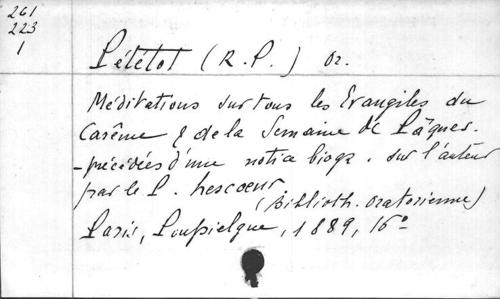 261
223
1
Pététot (R.P.) Or.
Méditations sur tous les Evangiles du
Carême & de la Semaine de Pâques.
- précédées d'une notice biogr. sur l'auteur
par le P. Lescoeur
(Biblioth. Oratorienne)
Paris, Poussielgue, 1889, 16°